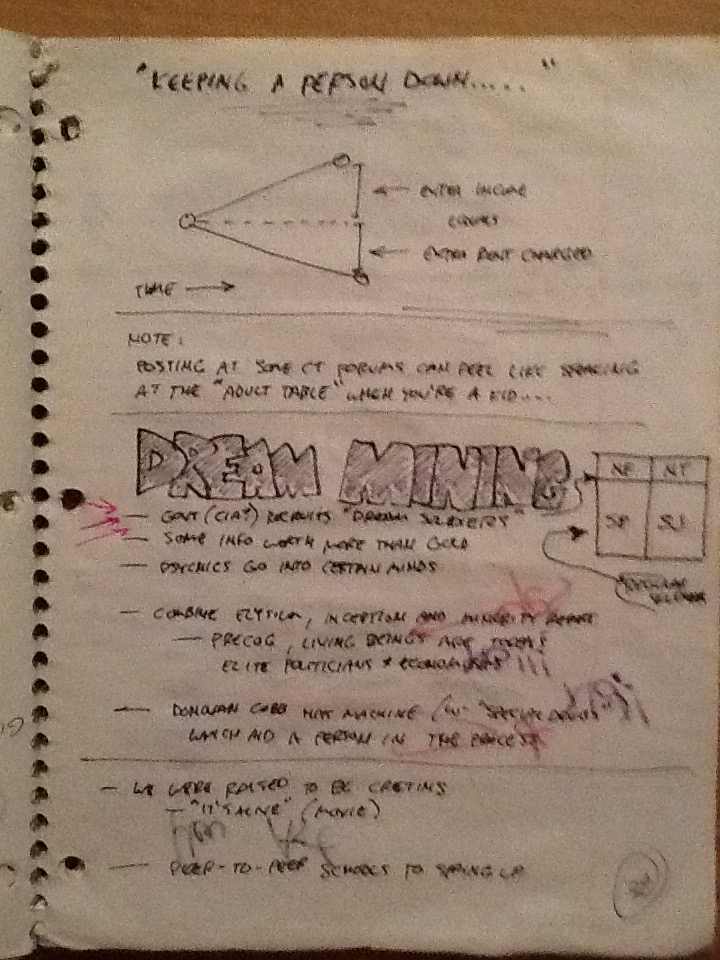 "KEEPING A PERSON DOWN....."
EXTRA INCOME
EQUALS
EXTRA RENT CHARGED
TIME
NOTE:
POSTING AT SOME CT FORUMS CAN FEEL LIKE SPEAKING
AT THE "ADULT TABLE" WHEN YOU'RE A KID....
DREAM MINING
NF NT
SP SJ
— GOVT (CIA?) RECRUITS "DREAM
— SOME INFO WORTH MORE THAN GOLD
— PSYCHICS GO INTO CERTAIN MINDS
— COMBINE ELYSIUM, INCEPTION AND MINORITY REPORT
— PRECOG, LIVING BEINGS ARE TODAYS
ELITE POLITICIANS + ECONOMISTS
— DONOVAN COBB HAS MACHINE (W/ "SPECIAL
WHICH AID A PERSON IN THE PROCESS
— WE WERE RAISED TO BE CRETINS
— "IT'S ALIVE" (MOVIE)
— PEER-TO-PEER SCHOOLS TO SPRING UP